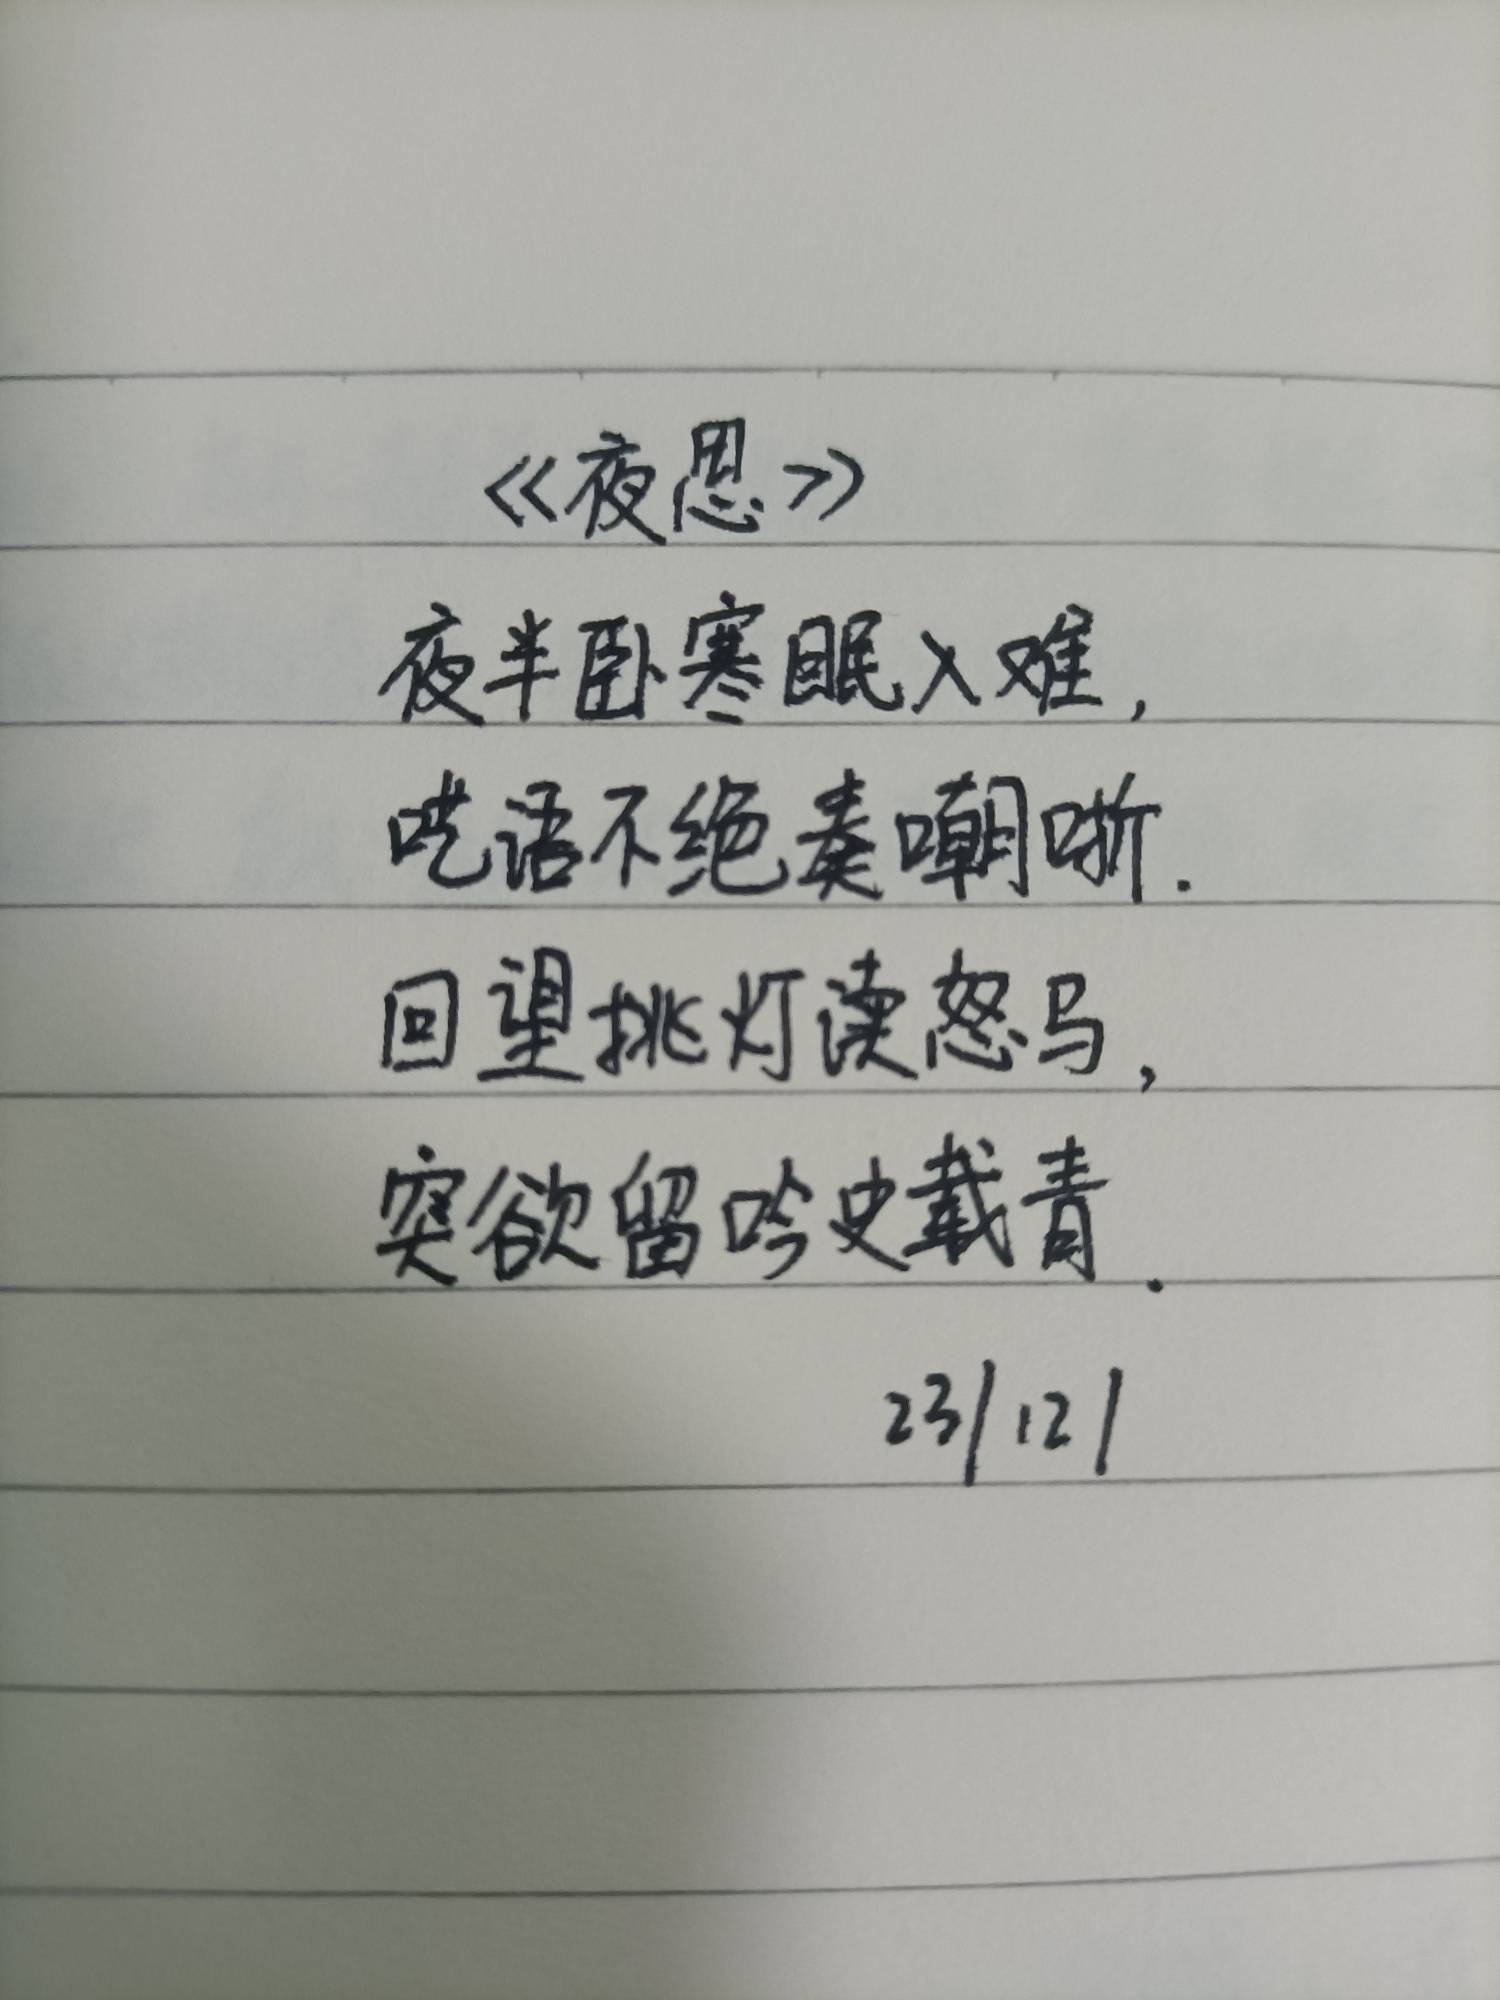 《夜思》
夜半卧寒眠入难，
呓语不绝奏嘲哳.
回望挑灯读怒马，
突欲留吟史载青.
23/12/